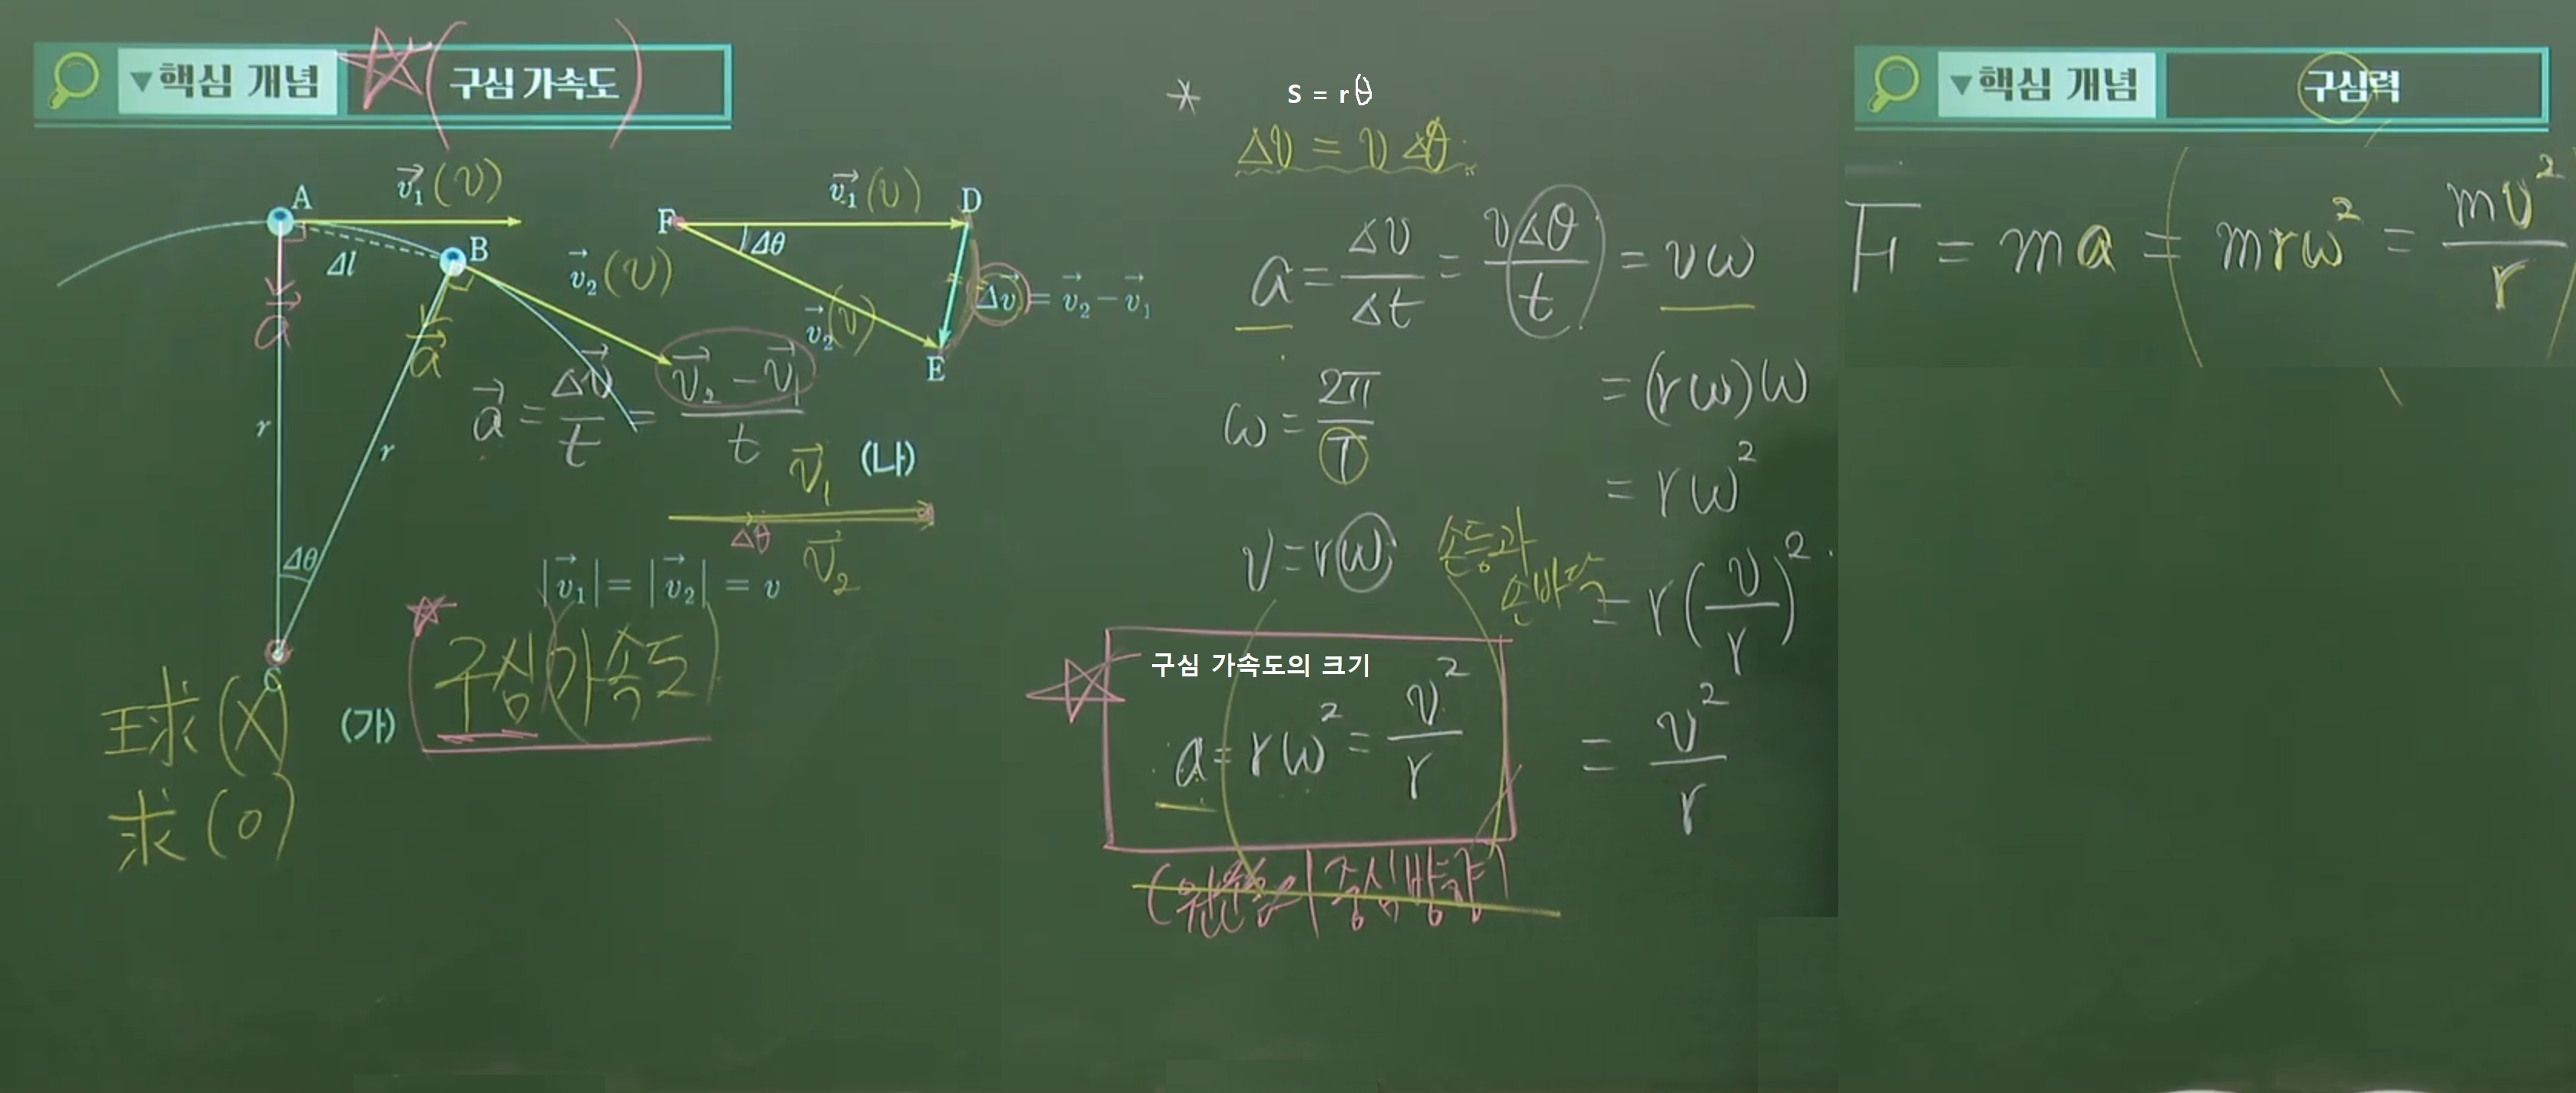 ▼핵심 개념 구심 가속도
A
v₁ (v)
B
Δl
v₂ (v)
a
a
r
r
Δθ
C
(가)
F
v₁ (v)
D
Δθ
v₂ (v)
E
Δv = v₂ - v₁
a = Δv/t = (v₂ - v₁)/t
(나)
v₁
Δθ
v₂
|v₁| = |v₂| = v
구심 가속도
球 (X)
求 (O)
* S = rθ
Δv = v Δθ
a = Δv/Δt = vΔθ/t = vω
= (rω)ω
= rω²
= r(v/r)²
= v²/r
ω = 2π/T
v = rω
손등과
손바닥
구심 가속도의 크기
a = rω² = v²/r
중심방향
▼핵심 개념 구심력
F = ma = mrω² = mv²/r